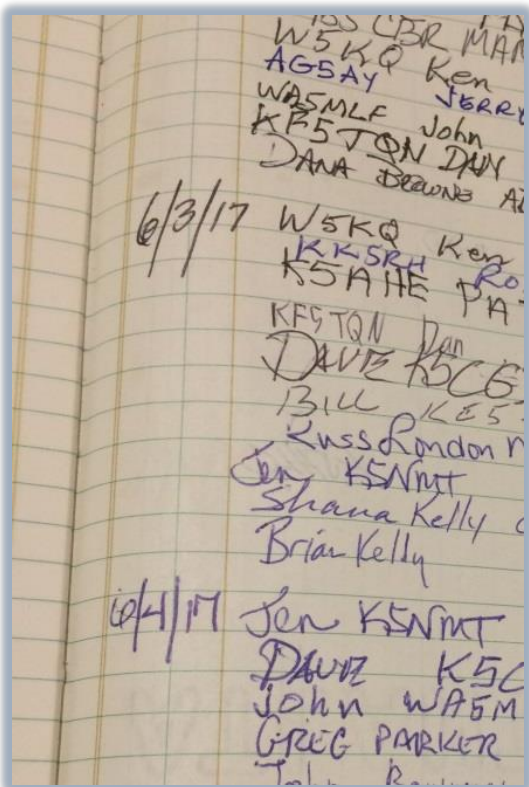 CBR MAR
W5KQ Ken
AG5AY JERRY
WA5MLF John
KF5TQN DAN
DANA BROWNE
6/3/17 W5KQ Ken
KK5RH Ro
K5AHE PA
KF5TQN Dan
DAVE K5CG
BILL KE5
Russ London
Jen K5NMT
Shana Kelly
Brian Kelly
6/4/17 Jen K5NMT
DAVE K5C
John WA5M
GREG PARKER
John